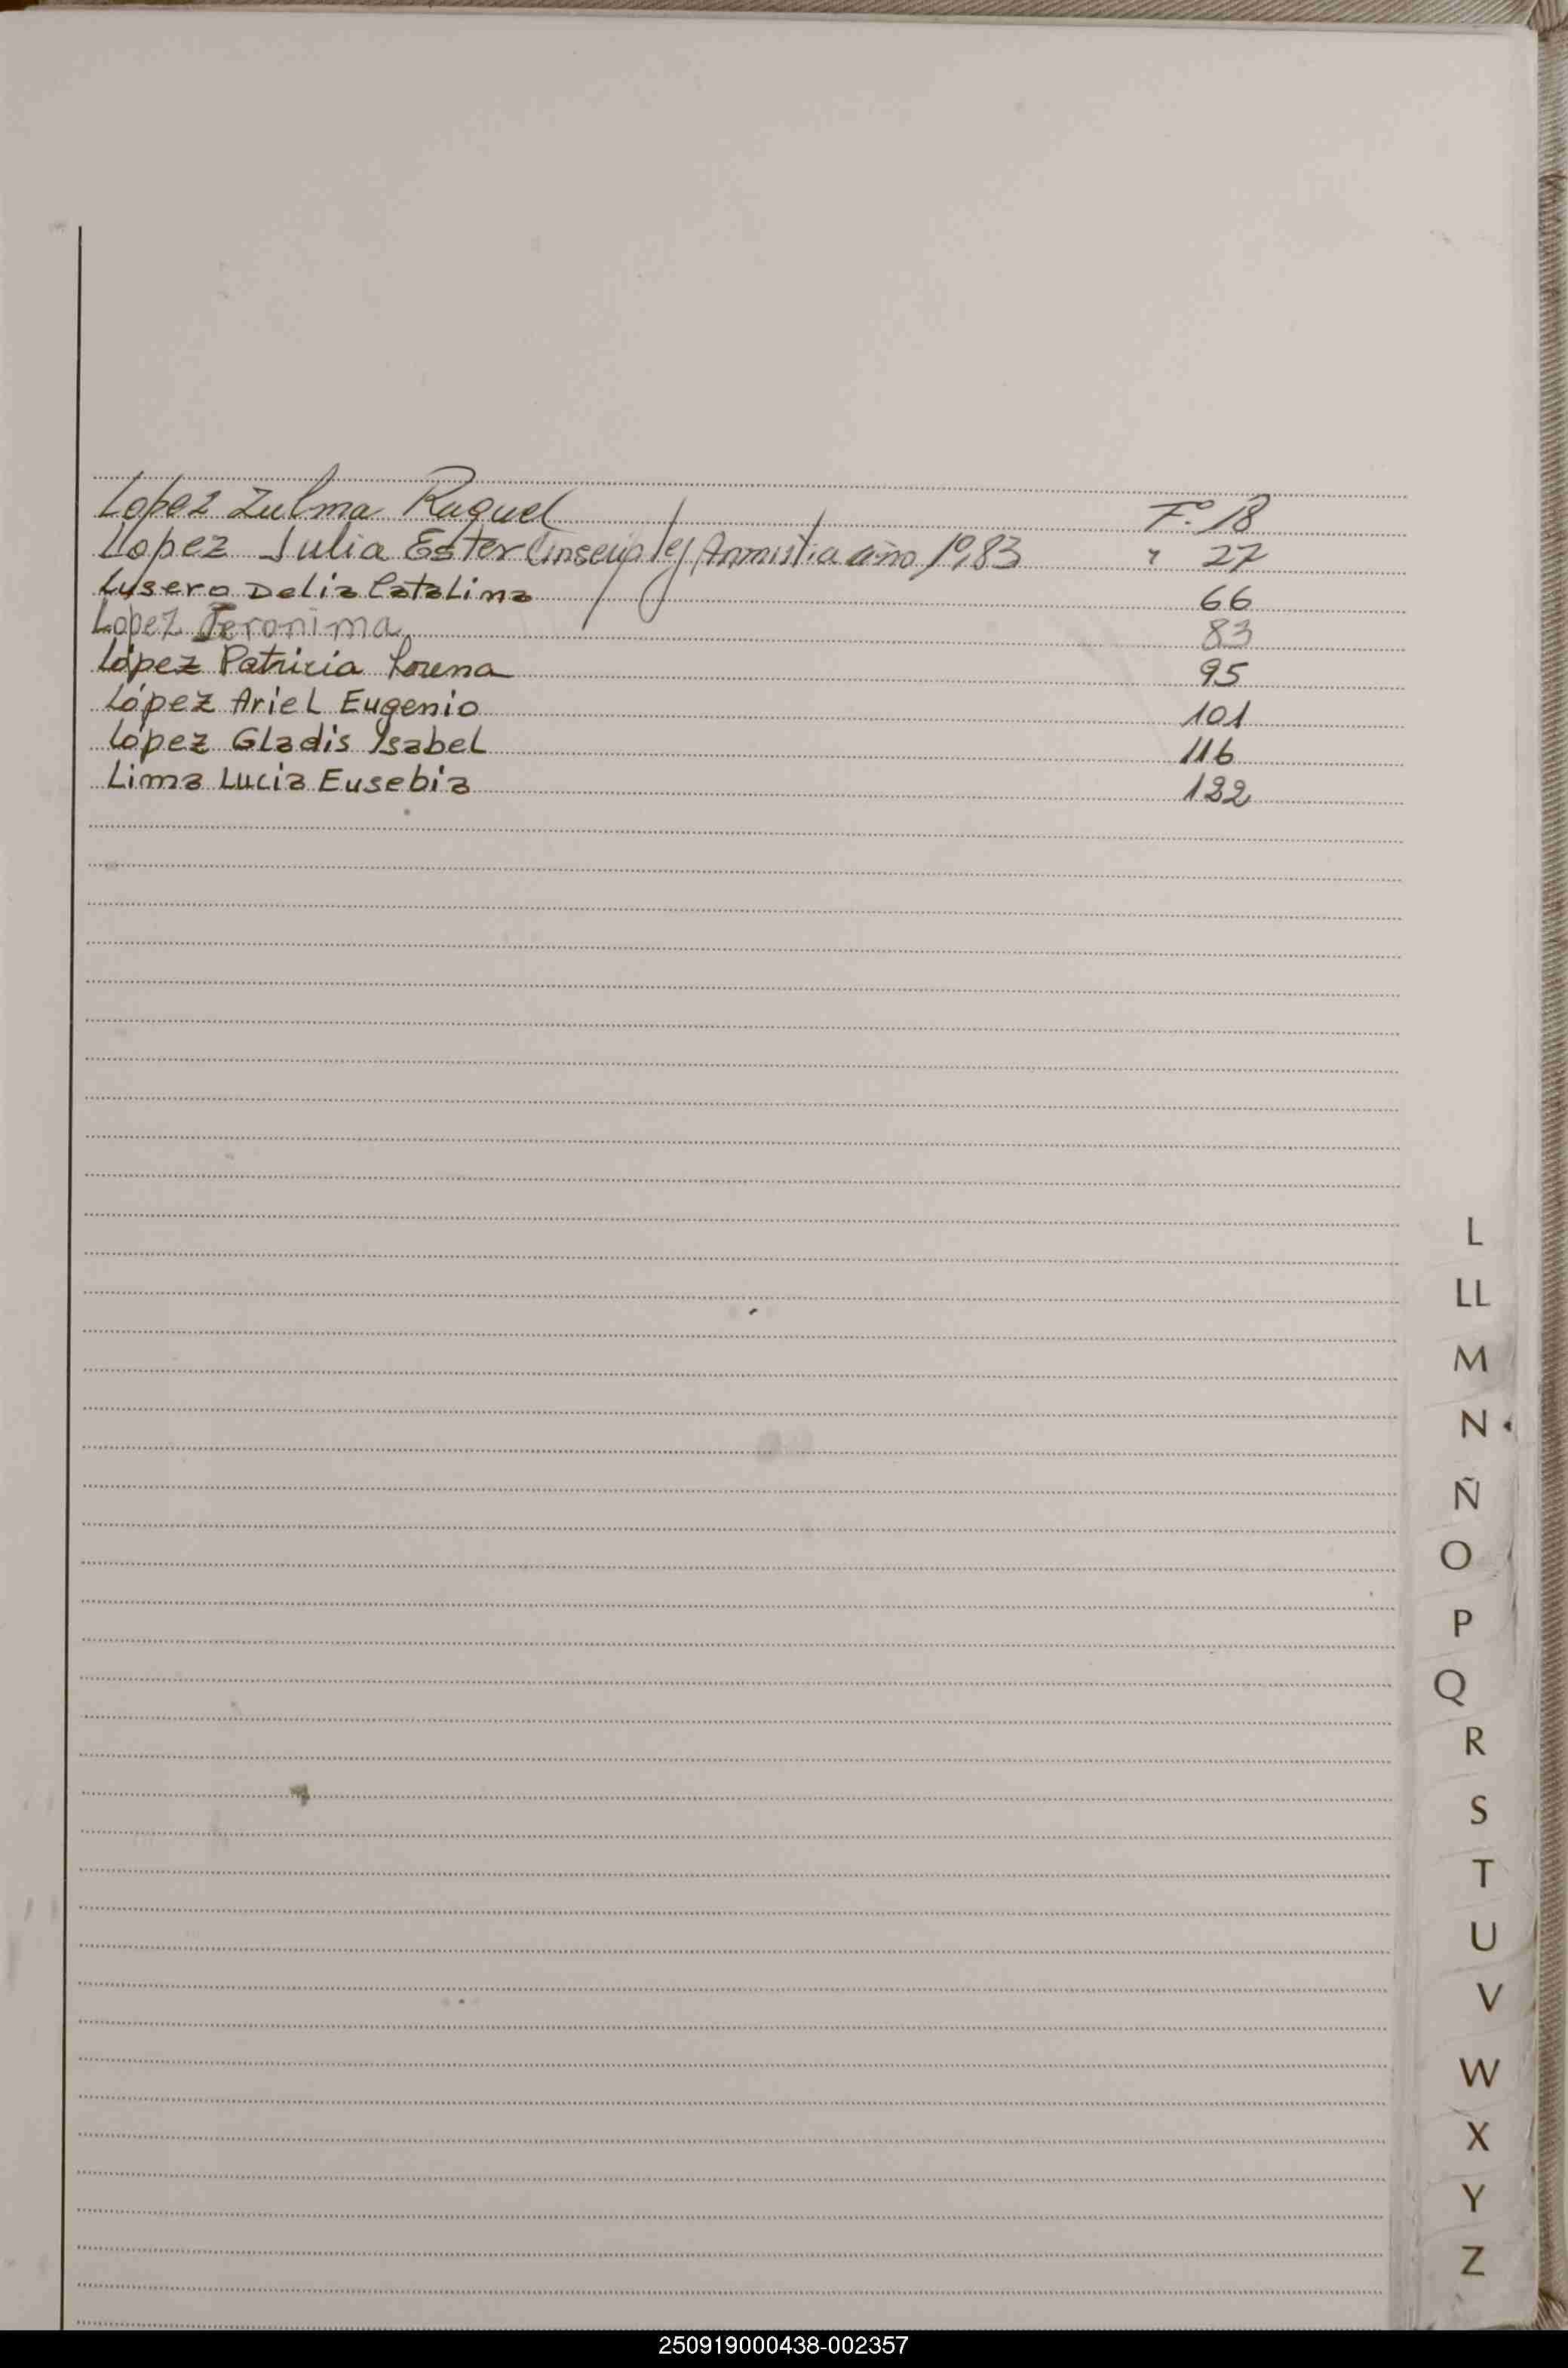 Lopez Zulma Raquel F° 18
Lopez Julia Ester (inscrip ley Anmistia año 1983 " 27
Lusero Delia Catalina 66
Lopez Jeronima 83
López Patricia Lorena 95
López Ariel Eugenio 101
López Gladis Ysabel 116
Lima Lucia Eusebia 122
L
LL
M
N
Ñ
O
P
Q
R
S
T
U
V
W
X
Y
Z
250919000438-002357